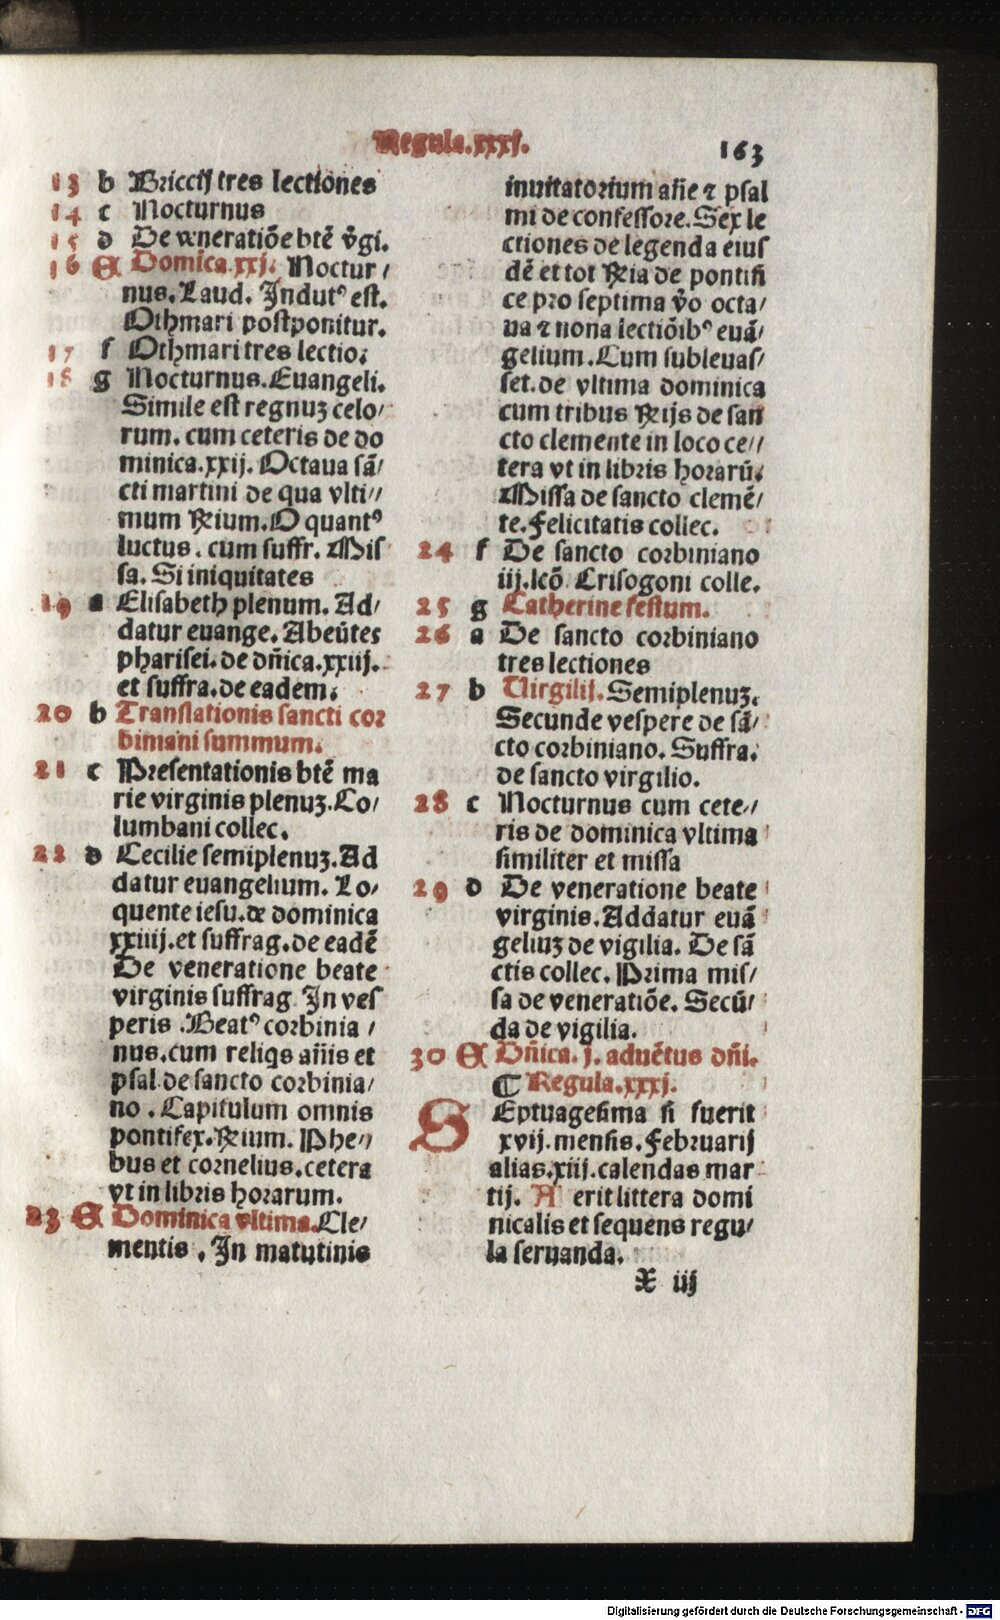 Regula.xxxj.
163
13 b Briccij tres lectiones
14 c Nocturnus
15 d De veneratiōe btē v̄gi.
16 A Domica.xxj. Noctur/
nus. Laud. Indutꝰ est.
Othmari postponitur.
17 f Othmari tres lectio.
18 g Nocturnus. Euangeli.
Simile est regnuꝫ celo/
rum. cum ceteris de do
minica.xxij. Octaua sā/
cti martini de qua vlti//
mum ℞ium. O quantꝰ
luctus. cum suffr. Mis
sa. Si iniquitates
19 a Elisabeth plenum. Ad/
datur euange. Abeūtes
pharisei. de dn̄ica.xxiij.
et suffra. de eadem.
20 b Translationis sancti cor
biniani summum.
21 c Presentationis btē ma
rie virginis plenuꝫ. Co/
lumbani collec.
22 d Cecilie semiplenuꝫ. Ad
datur euangelium. Lo/
quente iesu. de dominica
xxiiij. et suffrag. de eadē
De veneratione beate
virginis suffrag. In ves
peris. Beatꝰ corbinia /
nus. cum reliqs an̄is et
psal. de sancto corbinia/
no. Capitulum omnis
pontifex. ℞ium. Phe//
bus et cornelius. cetera
vt in libris horarum.
23 A Dominica vltima. Cle/
mentis. In matutinis
inuitatorium an̄e ⁊ psal
mi de confessore. Sex le
ctiones de legenda eius
dē et tot ℞ia de pontifi
ce pro septima v̄o octa/
ua ⁊ nona lectiōibꝰ euā/
gelium. Cum subleuas/
set. de vltima dominica
cum tribus ℞ijs de san
cto clemente in loco ce//
tera vt in libris horarū.
Missa de sancto clemē/
te. Felicitatis collec.
24 f De sancto corbiniano
iij. lcō. Crisogoni colle.
25 g Catherine festum.
26 a De sancto corbiniano
tres lectiones
27 b Virgilij. Semiplenuꝫ.
Secunde vespere de sā/
cto corbiniano. Suffra.
de sancto virgilio.
28 c Nocturnus cum cete//
ris de dominica vltima
similiter et missa
29 d De veneratione beate
virginis. Addatur euā
geliuꝫ de vigilia. De sā
ctis collec. Prima mis/
sa de veneratiōe. Secū/
da de vigilia.
30 A Dn̄ica. j. aduētus dn̄i.
¶ Regula.xxxj.
SEptuagesima si fuerit
xvij. mensis. Februarij
alias.xiij.calendas mar
tij. A erit littera domi
nicalis et sequens regu/
la seruanda.
X iij
Digitalisierung gefördert durch die Deutsche Forschungsgemeinschaft - DFG